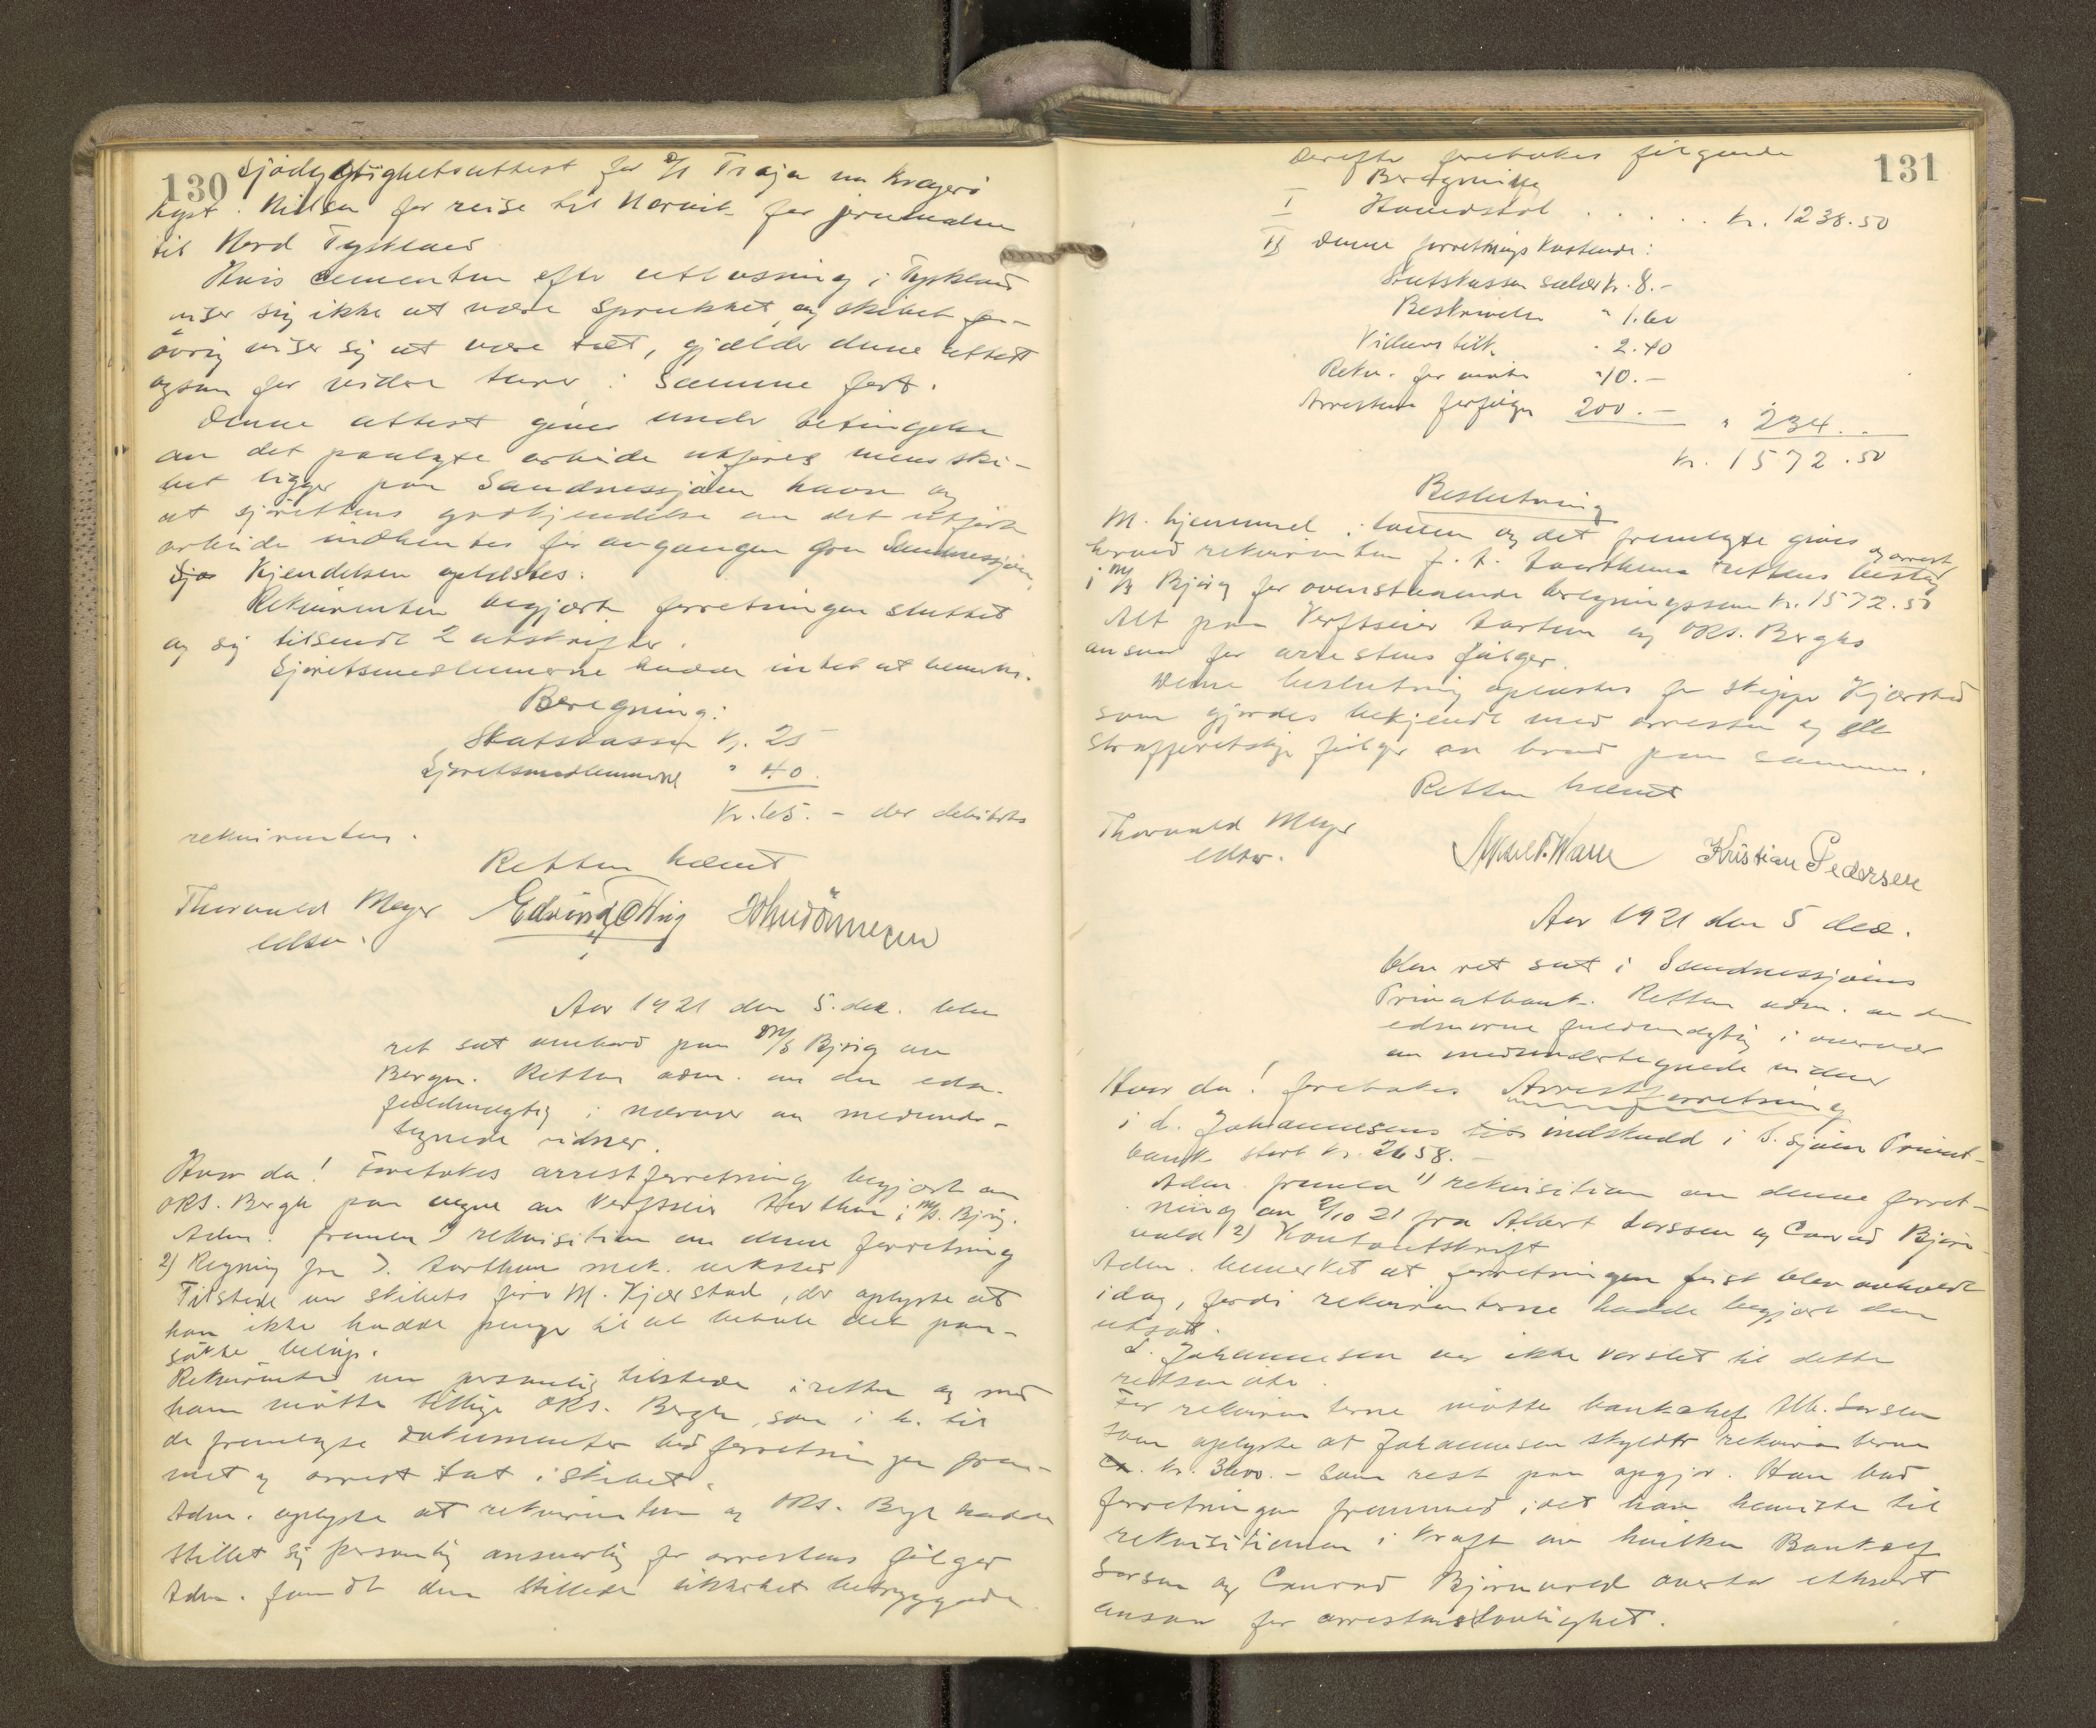 130
Sjødygtighetsattest for D/S Troja av Kragerø
kapt. Nilsen for reise til Narvik for jernmalm
til Nord Tyskland
Hvis cementen efter utlosning i Tyskland
viser sig ikke at være sprukket og skibet for-
øvrig viser sig at være tæt, gjælder denne attest
ogsaa for videre turer i samme fart.
Denne attest gives under betingelse
av det paalagte arbeide utføres mens ski-
bet ligger paa Sandnessjøen havn og
at sjørettens godkjendelse av det utførte
arbeide indhentes før avgangen fra Sandnessjøen.
Kjendelsen oplæstes.
Rekvirenten begjærte forretningen sluttet
og sig tilsendt 2 utskrifter.
Sjøretsmedlemmerne hadde intet at bemerke.
Beregning:
Statskassen Kr. 25
Sjøretsmedlemmerne " 40.
Kr. 65. - der debiteres
rekvirenten.
Retten hævet
Thorvald Meyer
edsv.
Aar 1921 den 5. dec. blev
ret sat ombord paa M/S Bjørg av
Bergen. Retten adm. av den edsv.
fuldmægtig i nærvær av medunder-
tegnede vidner.
Hvor da! Foretokes arrestforretning begjært av
ORS. Bergh paa vegne av Verftseier Aarthun i M/S. Bjørg.
Adm. fremla 1) rekvisition av denne forretning
2) Regning fra J. Aarthun mek. verksted
Tilstede var skibets fører M. Kjærstad, der oplyste at
han ikke hadde penger til at betale det paa-
søkte beløp.
Rekvirenten var personlig tilstede i retten og med
ham møtte tillige ORS. Bergh, som i h. til
de fremlagte dokumenter bød forretningen frem-
met og arrest tat i skibet.
Adm. oplyste at rekvirenten og ORS. Bergh hadde
stillet sig personlig ansvarlig for arrestens følger
Adm. fandt den stillede sikkerhet betryggende.
131
Derefter foretokes følgende
Beregning
I Hovedstol . . . . . . Kr. 1238.50
II Denne forretnings kostende:
Statskassen salær Kr. 8.-
Beskrivelse " 1.60
Vidners tilk. " 2.40
Rekv. for møte " 10.-
Arrestens forfølgn 200.- " 234. .
Kr. 1572.50
Beslutning
M. hjemmel i loven og det fremlagte gives
herved rekvirenten J. A. Aarthun rettens beslag og arrest
i M/S Bjørg for ovenstaaende beregningssum Kr. 1572.50
Alt paa Verftseier Aarthun og ORS. Berghs
ansvar for arrestens følger.
Denne beslutning oplæstes for skipper Kjærstad
som gjordes bekjendt med arresten og de
strafferetslige følger av brud paa samme.
Retten hævet
Thorvald Meyer
edsv.
Kristian Pedersen
Aar 1921 den 5 dec.
blev ret sat i Sandnessjøens
Privatbank. Retten adm. av den
edsvorne fuldmægtig i overvær
av medundertegnede vidner
Hvor da! foretokes Arrestforretning
i L. Johannesens indskudd i S.sjøen Privat-
bank stort Kr. 2658.-
Adm. fremla 1) rekvisition av denne forret-
ning av 8/10 21 fra Albert Larssen og Conrad Bjørn-
vald 2) Kontoutskrift
Adm. bemerket at forretningen først blev avholdt
idag, fordi rekvirenterne hadde begjært den
utsat.
L. Johannesen var ikke varslet til dette
retsmøte.
For rekvirenterne møtte bankchef Alb. Larsen
som oplyste at Johannesen skyldte rekvirenterne
Kr. 3600.- som rest paa opgjør. Han bad
forretningen fremmed, idet han henviste til
rekvisitionen i kraft av hvilken Bankchef
Larsen og Conrad Bjørnvald overtar ethvert
ansvar for arrestens lovlighet.